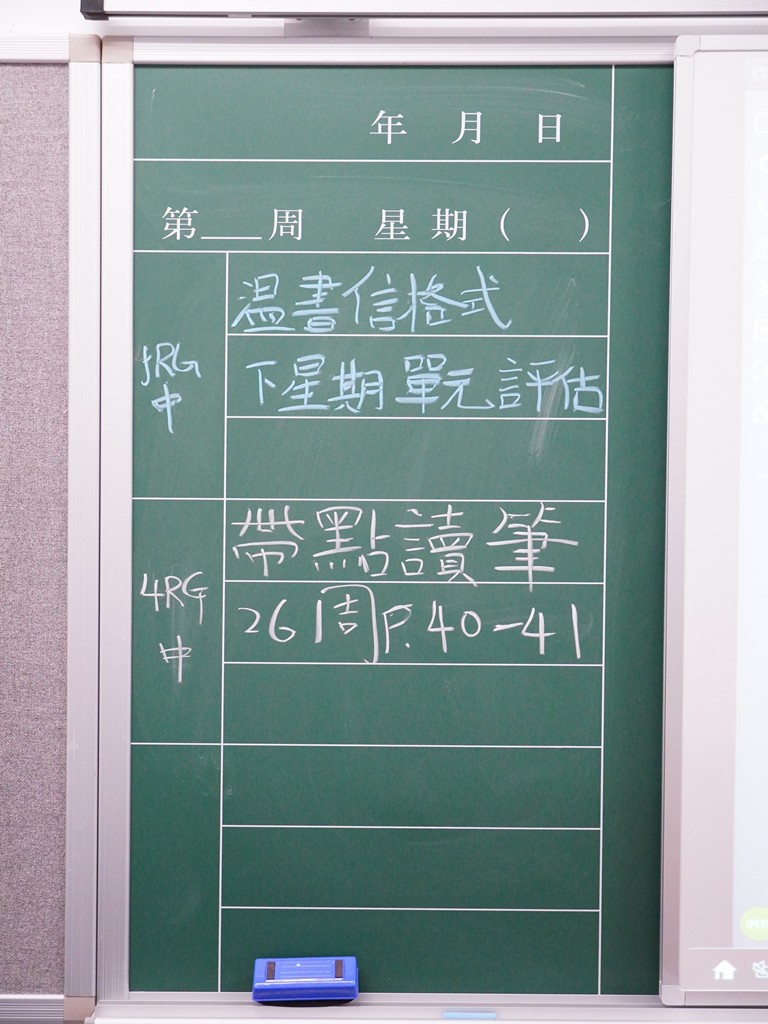 年 月 日
第___周 星期( )
温書信格式
5RG
中
下星期單元評估
帶點讀筆
4RG
中
26周P.40-41